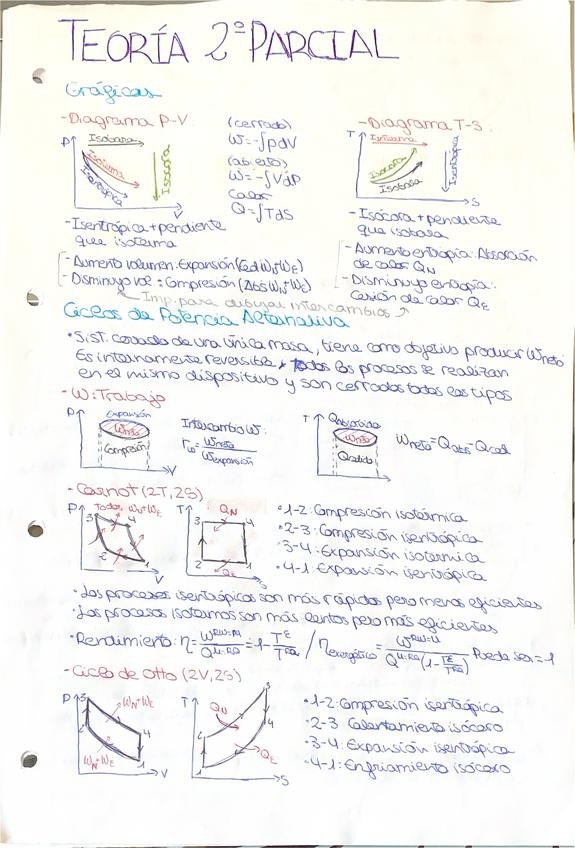 TEORÍA 2º PARCIAL
Gráficas
- Diagrama P-V
P
Isobara
Isoterma
Isentrópica
Isócora
V
(cerrado)
W=-∫pdV
(abierto)
W=-∫Vdp
Calor
Q=∫TdS
- Diagrama T-S:
T
Isoterma
Isócora
Isobara
Isentrópica
S
- Isentrópica + pendiente
que isoterma
- Aumento volumen: Expansión
- Disminuye vol = Compresión
- Isócora + pendiente
que isobara
- Aumento entropía: Absorción
de calor QN
- Disminuye entropía:
Cesión de calor QE
Imp. para dibujar intercambios
Ciclos de Potencia Alternativa
• Sist. cerrado de una única masa, tiene como objetivo producir Wneto
Es internamente reversible, todos los procesos se realizan
en el mismo dispositivo y son cerrados todos los tipos
- W: Trabajo
P
Expansión
Wneto
Compresión
V
Intercambio W:
rw = Wneto / Wexpansión
T
Qabsorbido
Wneto
Qcedido
Wneto = Qabs - Qced
- Carnot (2T, 2S)
P
3
4
2
1
V
T
QN
3
4
2
1
QE
S
• 1-2: Compresión isotérmica
• 2-3: Compresión isentrópica
• 3-4: Expansión isotermica
• 4-1: Expansión isentrópica
• Los procesos isentrópicos son más rápidos pero menos eficientes
• Los procesos isotermos son más lentos pero más eficientes
• Rendimiento:
Puede ser = 1
- Ciclo de Otto (2V, 2S)
P
3
WN-WE
2
4
WN-WE
1
V
T
3
QN
2
4
QE
1
S
• 1-2: Compresión isentrópica
• 2-3 Calentamiento isócoro
• 3-4: Expansión isentrópica
• 4-1: Enfriamiento isócoro